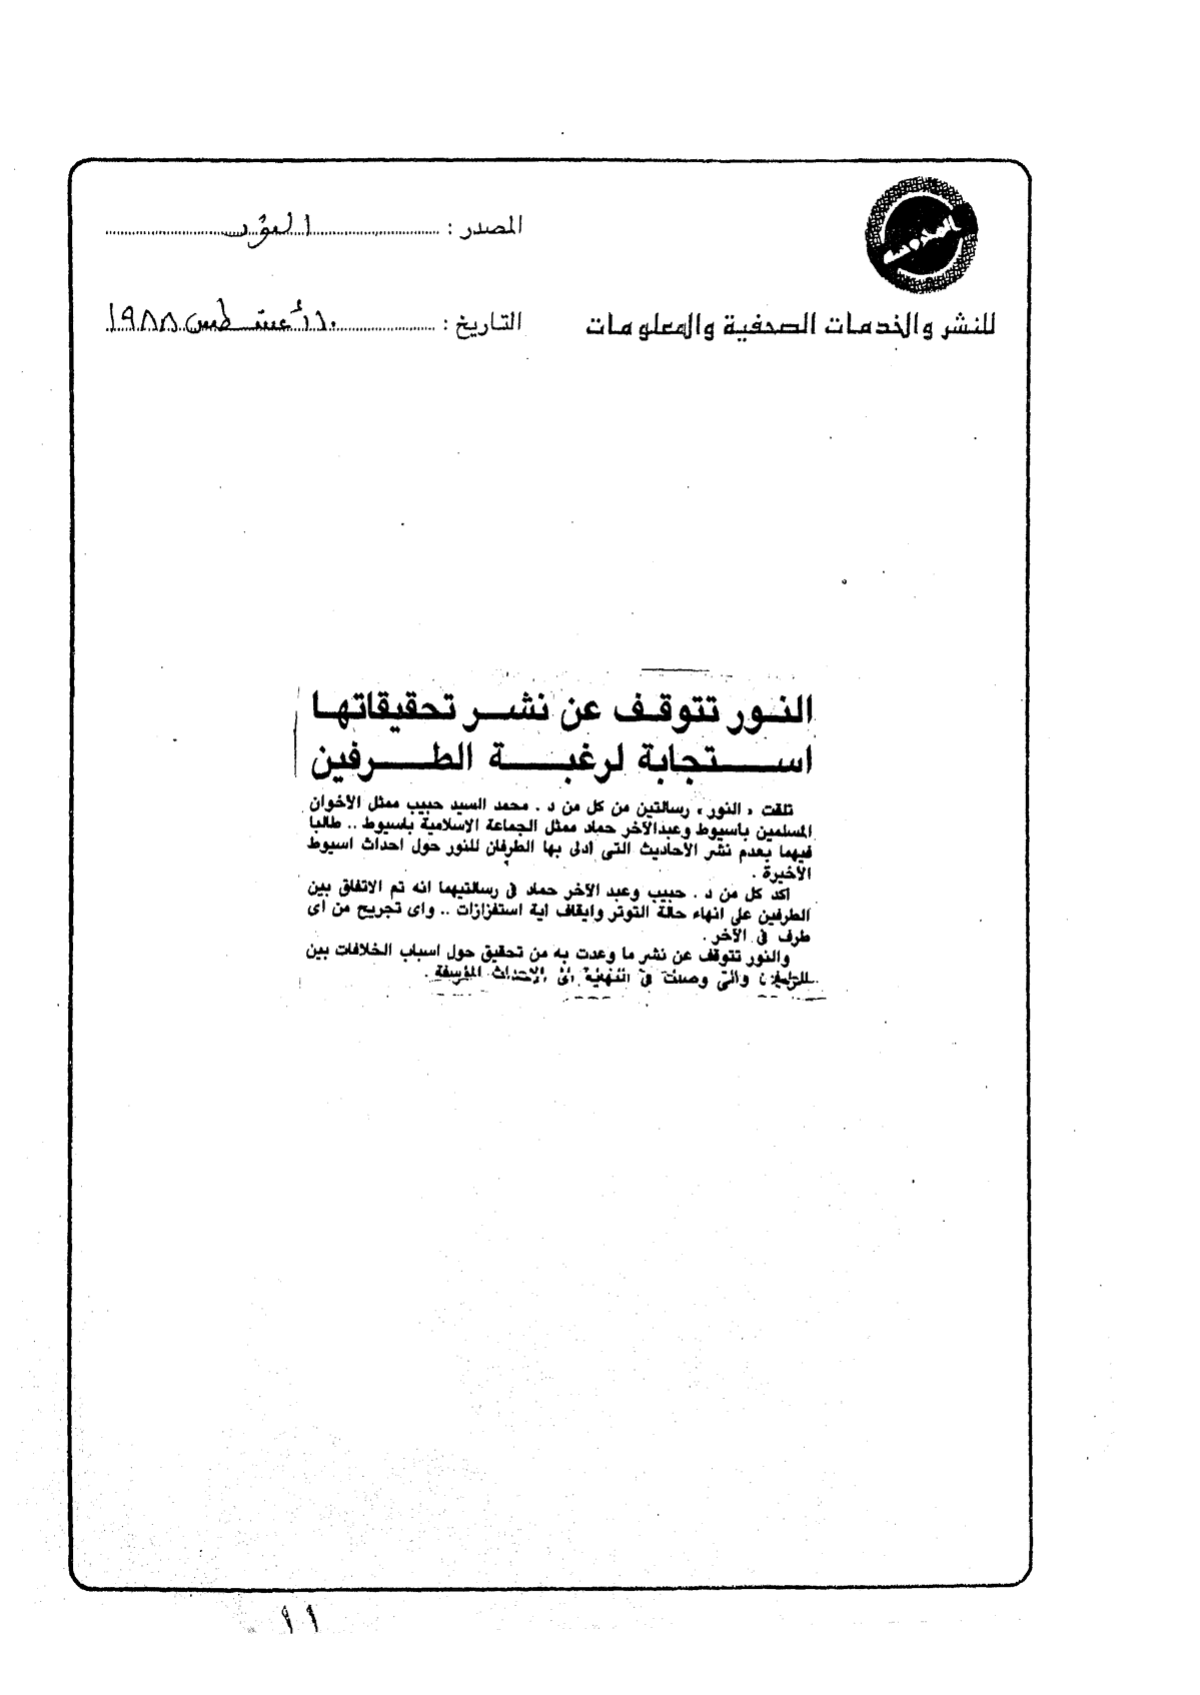 المصدر : النور
للنشر والخدمات الصحفية والمعلومات
التاريخ : ١٠ أغسطس ١٩٨٨
النور تتوقف عن نشر تحقيقاتها
استجابة لرغبة الطرفين
تلقت « النور » رسالتين من كل من د . محمد السيد حبيب ممثل الأخوان
المسلمين بأسيوط وعبدالآخر حماد ممثل الجماعة الاسلامية باسيوط .. طالبا
فيهما بعدم نشر الاحاديث التى أدلى بها الطرفان للنور حول احداث اسيوط
الأخيرة .
اكد كل من د . حبيب وعبد الآخر حماد فى رسالتيهما انه تم الاتفاق بين
الطرفين على انهاء حالة التوتر وايقاف اية استفزازات .. واى تجريح من أى
طرف فى الآخر .
والنور تتوقف عن نشر ما وعدت به من تحقيق حول اسباب الخلافات بين
والتى وصلت فى النهاية الى الاحداث المؤسفة .
١١